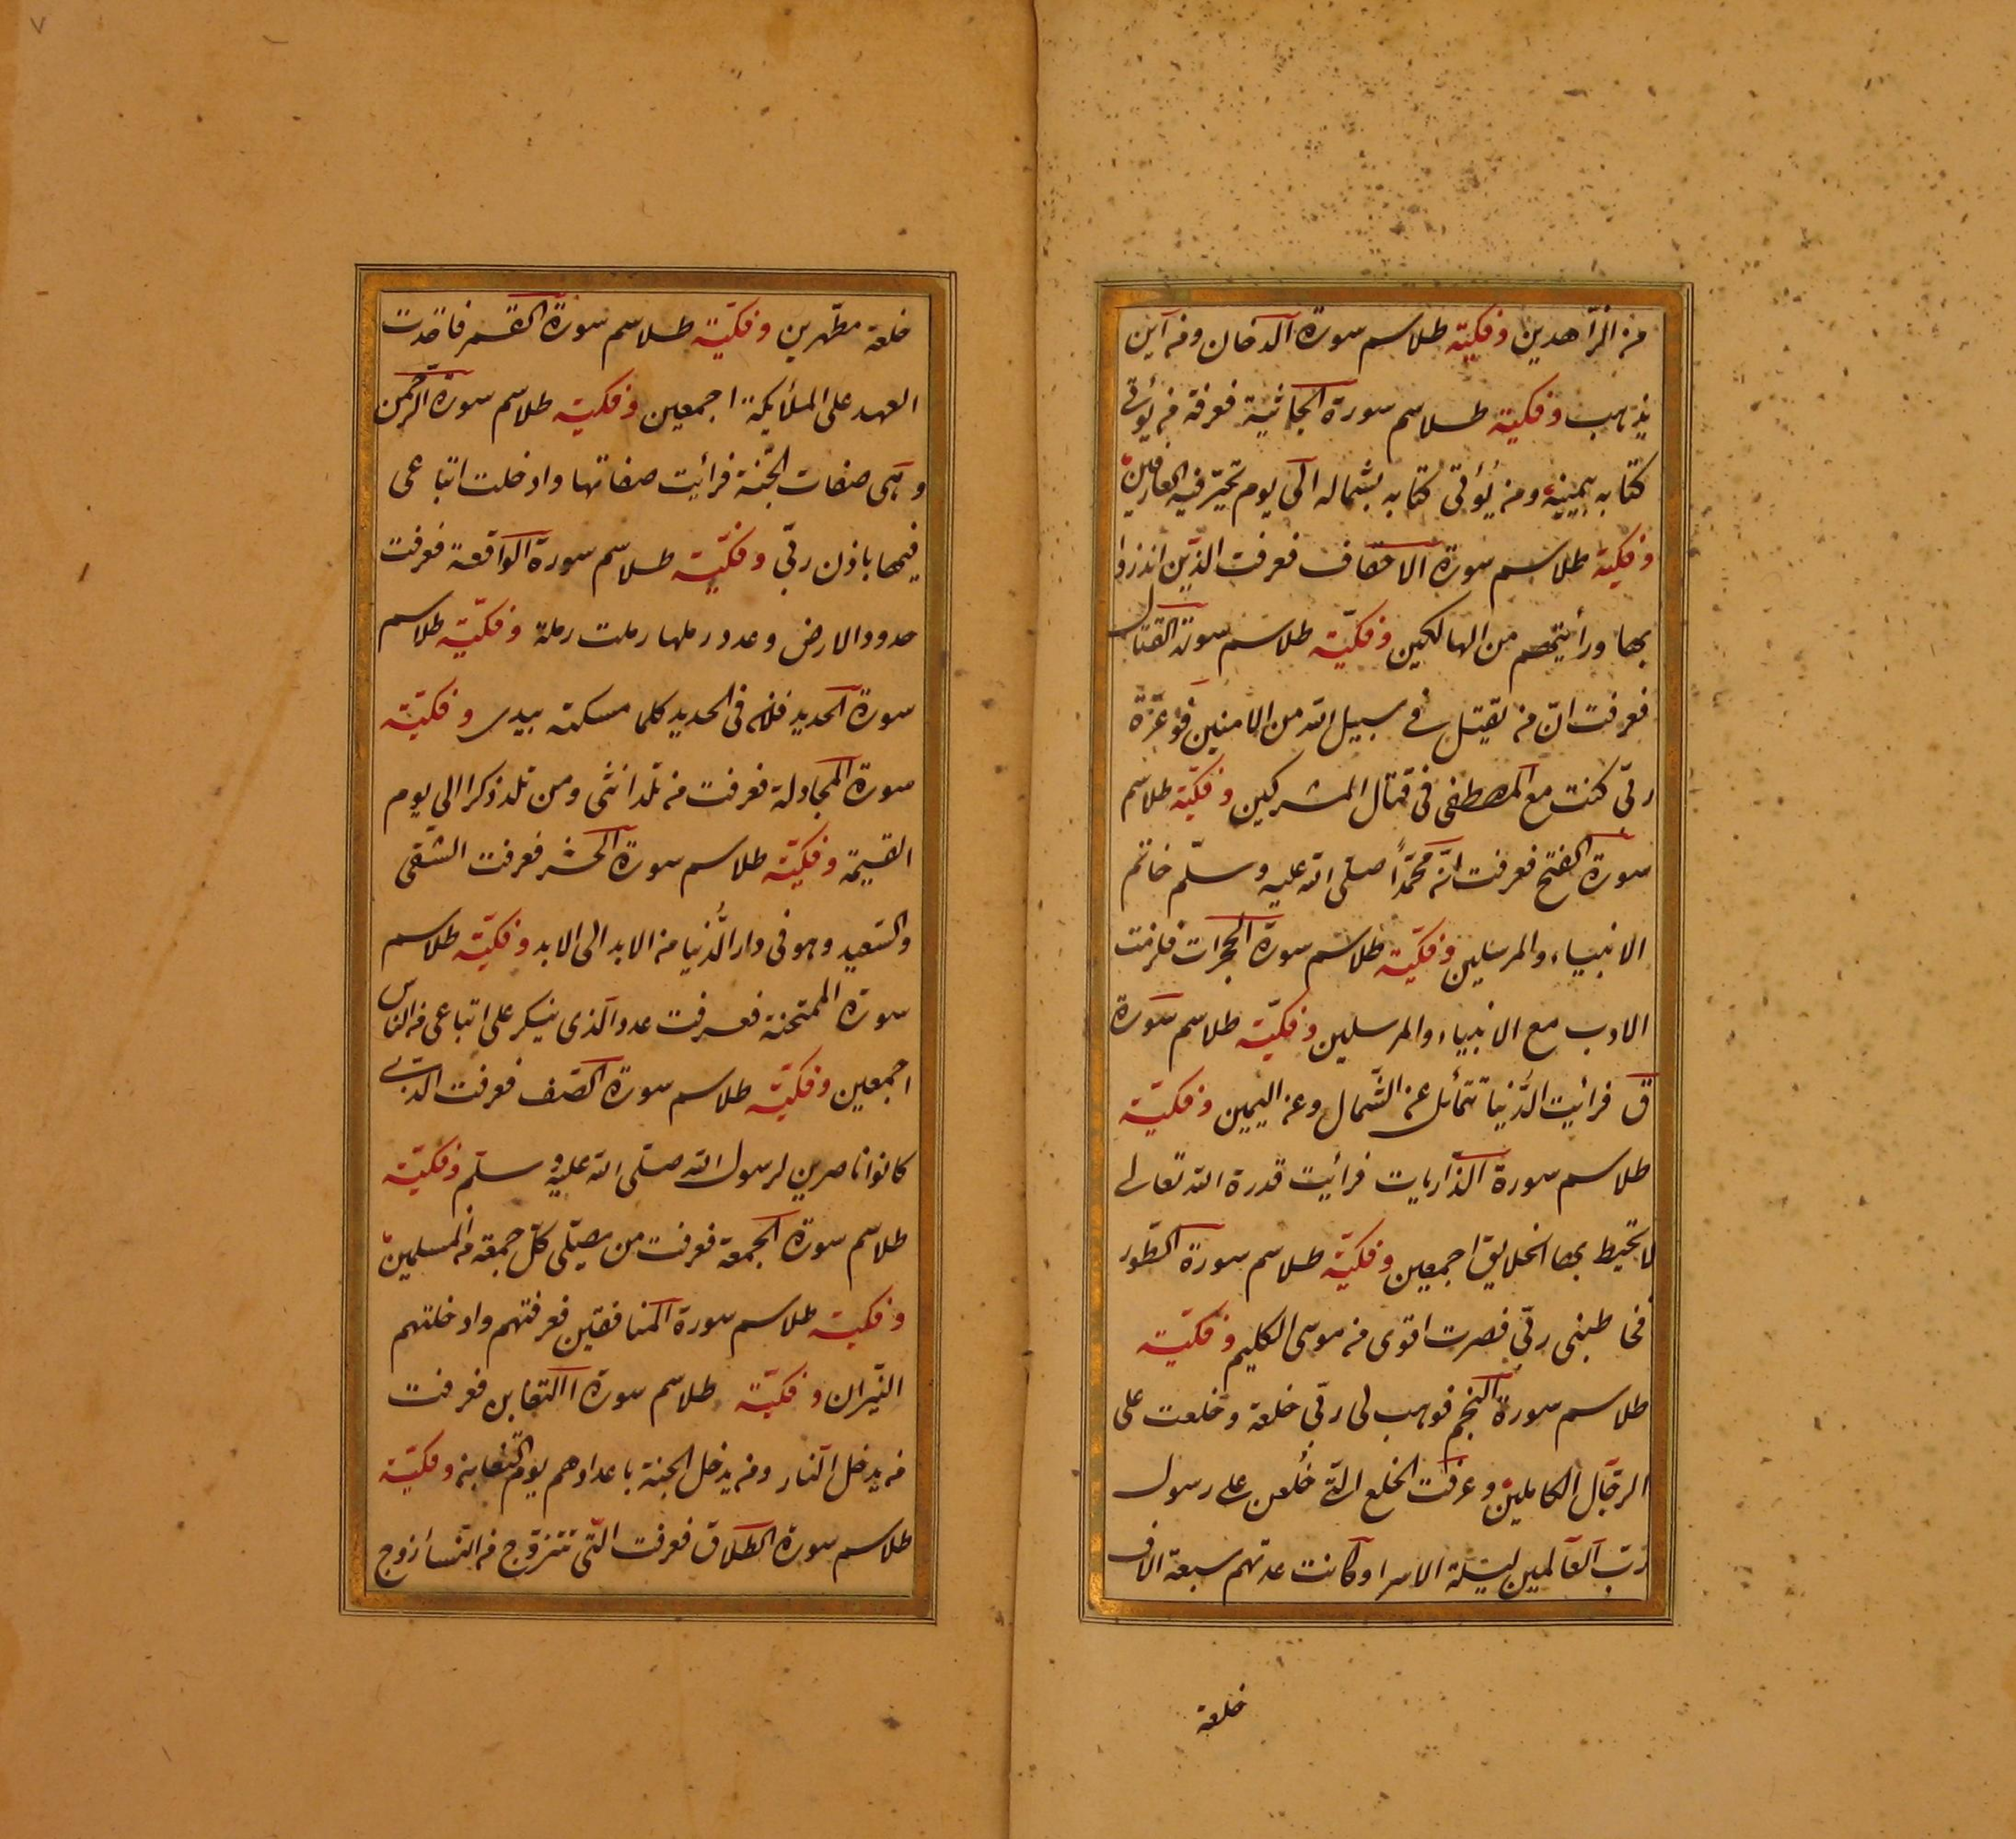 من الزّاهدين وفكيّة طلاسم سورة الدخان ومن اين
يذهب وفكيّة طلاسم سورة الجاثية فعرفة من يؤتى
كتابه بيمينه ومن يُؤتى كتابه بشماله الى يوم تحيّر فيه العارفين
وفكيّة طلاسم سورة الاحقاف فعرفت الذّين انذروا
بها ورأيتهم من الهالكين وفكيّة طلاسم سورة القتال
فعرفت انّ من يقتل في سبيل الله من الامنين فوعزّة
ربّى كنت مع المصطفى فى قتال المشركين وفكيّة طلاسم
سورة الفتح فعرفت انّ محمّداً صلى الله عليه وسلّم خاتم
الانبياء والمرسلين وفكيّة طلاسم سورة الحجرات فلزمت
الادب مع الانبياء والمرسلين وفكيّة طلاسم سورة
ق فرائيت الدّنيا تتمائل عن الشّمال وعن اليمين وفكيّة
طلاسم سورة الذّاريات فرأيت قدرة الله تعالى
لا تحيط بها الخلايق اجمعين وفكيّة طلاسم سورة الطّور
فخاطبنى ربّي فصرت اقوى من موسى الكليم وفكيّة
طلاسم سورة النجم فوهب لى ربّي خلعة وخلعت على
الرجال الكاملين وعرفت الخلع الّتي خُلعن على رسول
ربّ العالمين ليلة الاسرا وكانت عدتهم سبعة الاف
خلعة
٧
خلعة مطّهرين وفكيّة طلاسم سورة القمر فاخدت
العهد على الملأيكة اجمعين وفكيّة طلاسم سورة الرحمن
وهى صفات الجنّة فرأيت صفاتها وادخلت اتباعى
فيها باذن ربّي وفكيّة طلاسم سورة الواقعة فعرفت
حدود الارض وعدد رملها رملت رملة وفكيّة طلاسم
سورة الحديد فلان فى الحديد كلما مسكته بيدى وفكيّة
سورة المجادلة فعرفت من تلد انثى ومن تلد ذكرا الى يوم
القيمة وفكيّة طلاسم سورة الحشر فعرفت الشّقى
والسّعيد وهو فى دار الدّنيا من الابد الى الابد وفكيّة طلاسم
سورة الممتحنة فعرفت عدد الذى ينكر على اتباعى من الناس
اجمعين وفكيّة طلاسم سورة الصّف فعرفت الذين
كانوا ناصرين لرسول الله صلّى الله عليه وسلّم وفكيّة
طلاسم سورة الجمعة فعرفت من يصلّى كلّ جمعة من المسلمين
وفكيّة طلاسم سورة المنافقين فعرفتهم وادخلتهم
النيّران وفكيّة طلاسم سورة االتغابن فعرفت
من يدخل النار ومن يدخل الجنة باعدادهم يوم التّغابن وفكيّة
طلاسم سورة الطلاق فعرفت التّى تتزوّج من النّسأ زوج